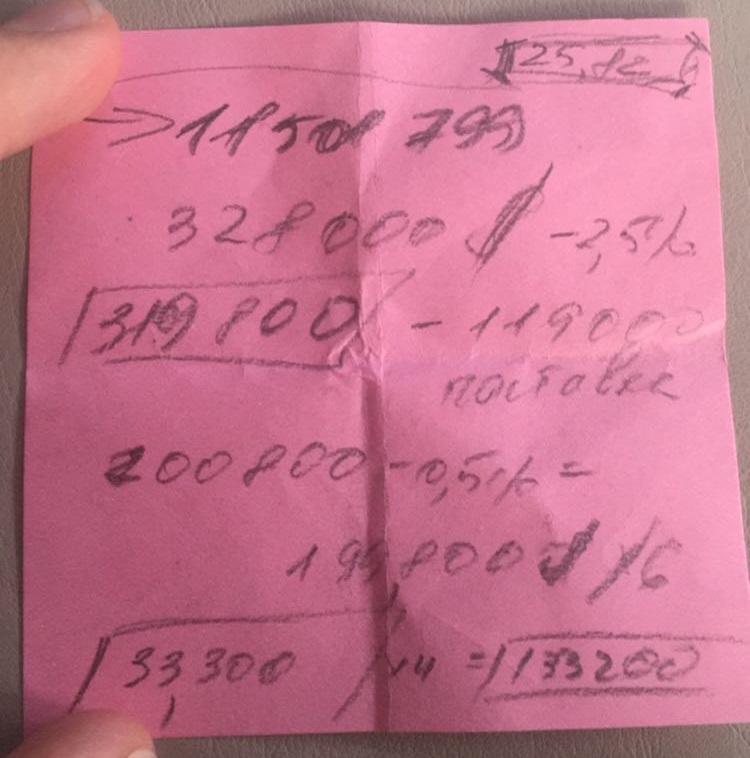 125,82
→ 11501 799
328000 $ -2,5%
319 800 - 119000
поставка
200800 - 0,5% =
199800 $ /6
33,300 x4 = 133200